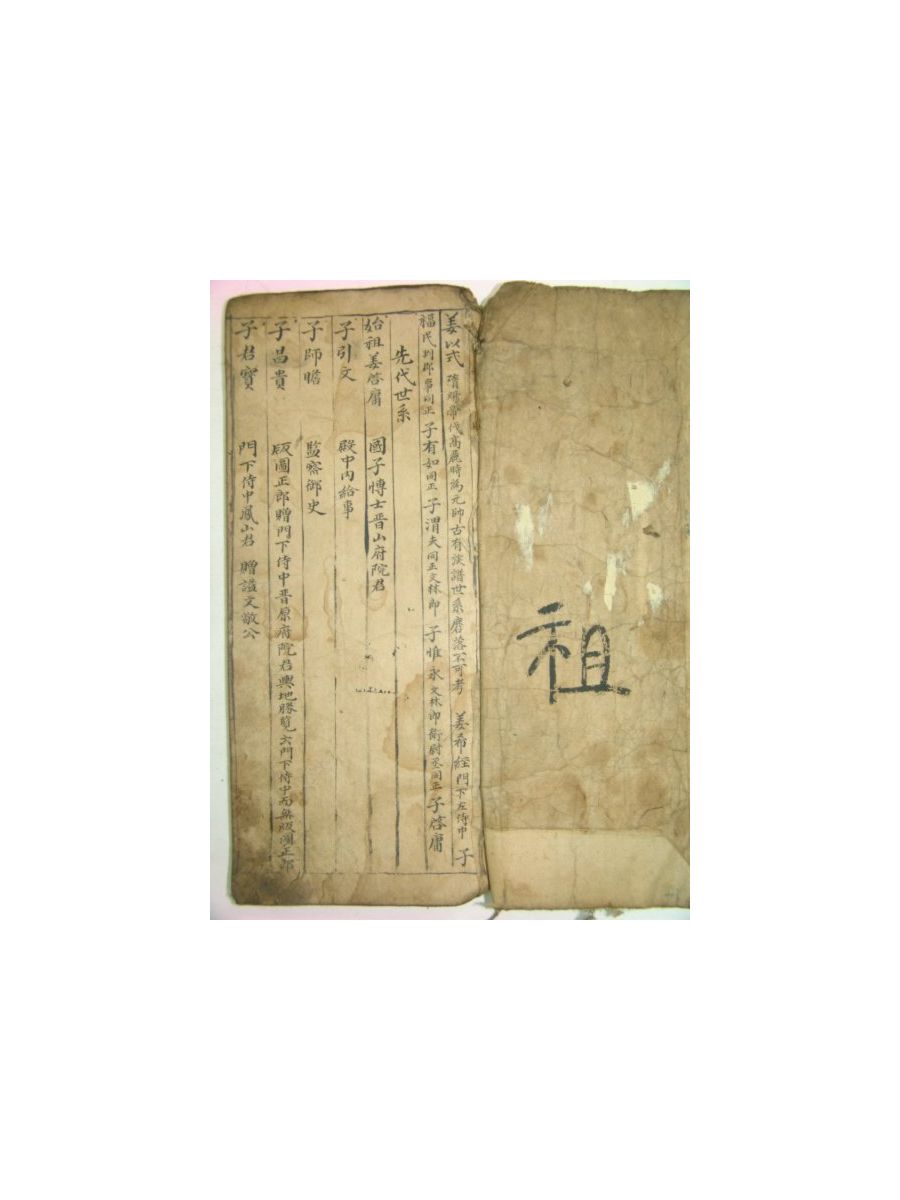 祖
姜以式 隋煬帝代高麗時爲元帥古有族譜世系磨落不可考 姜希經門下左侍中 子
福民判郎事同正 子有如同正 子渭夫同正文林郎 子惟永文林郎衛尉丞同正 子啓庸
先代世系
始祖姜啓庸 國子博士晋山府院君
子引文 殿中內給事
子師瞻 監察御史
子昌貴 版圖正郎贈門下侍中晋原府院君輿地勝覽云門下侍中而無版圖正郎
子君寶 門下侍中鳳山君 贈諡文敬公